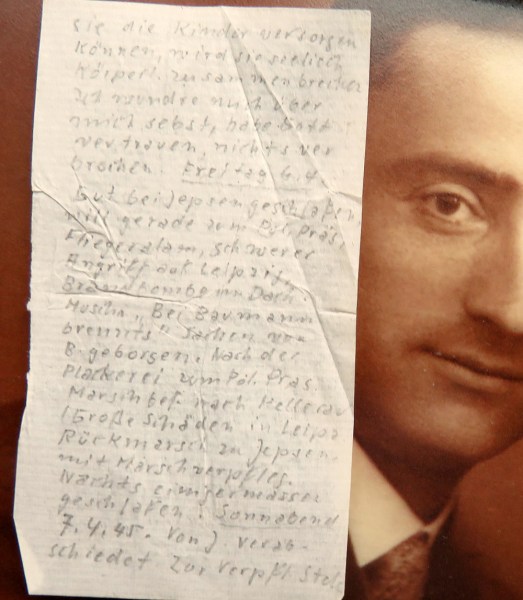 sie die Kinder versorgen
können, wird sie seelisch
Körperl. zusammenbrechen
Ich wundre mich über
mich selbst, habe Gott
vertrauen, nichts ver
brochen. Freitag 6.4.
Gut bei Jepsen geschlafen,
will gerade zum Pol. Präs.
Fliegeralarm, schwerer
Angriff auf Leipzig,
Brandbombe im Dach.
"Bei Baumann
brennts" Sachen von
B. geborgen. Nach der
Plackerei zum Pol. Präs.
Marschbef. nach Hellerau
(Große Schäden in Leipz
Rückmarsch zu Jepsen.
mit Marschverpfleg.
Nachts einigermassen
geschlafen. Sonnabend
7.4.45. Von J. verab-
schiedet zur Verpfl